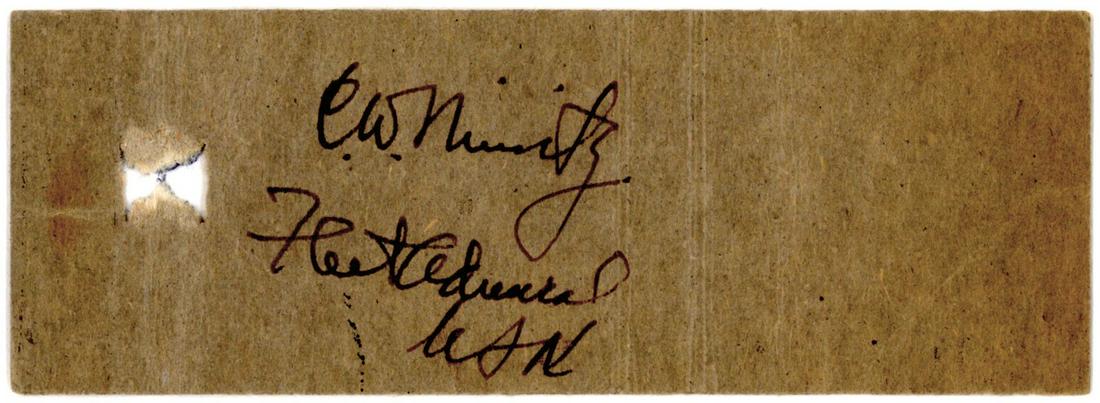 C.W. Nimitz
Fleet Admiral
USN